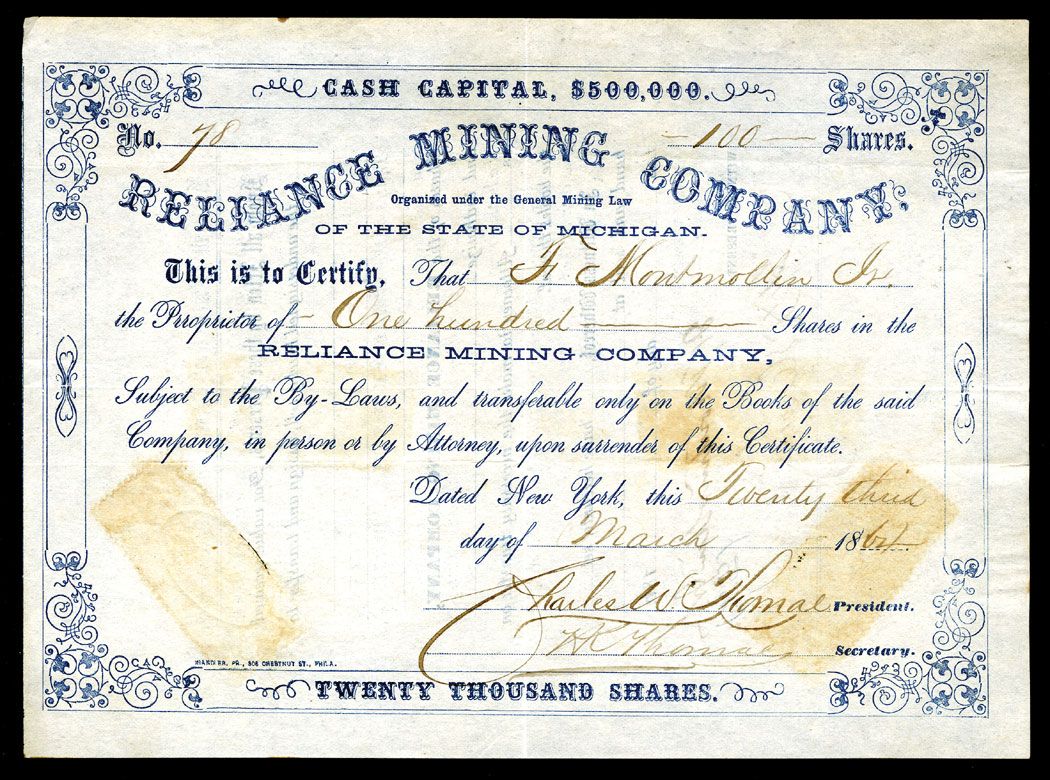 CASH CAPITAL, $500,000.
No. 78 100 Shares.
RELIANCE MINING COMPANY,
Organized under the General Mining Law
OF THE STATE OF MICHIGAN.
This is to Certify, That F. Montmollin Jr.
the Prroprietor of One hundred Shares in the
RELIANCE MINING COMPANY,
Subject to the By-Laws, and transferable only on the Books of the said
Company, in person or by Attorney, upon surrender of this Certificate.
Dated New York, this Twenty third
day of March 186
Charles W. Thomae President.
Thomae Secretary.
PR., 308 CHESTNUT ST., PHILA.
TWENTY THOUSAND SHARES.